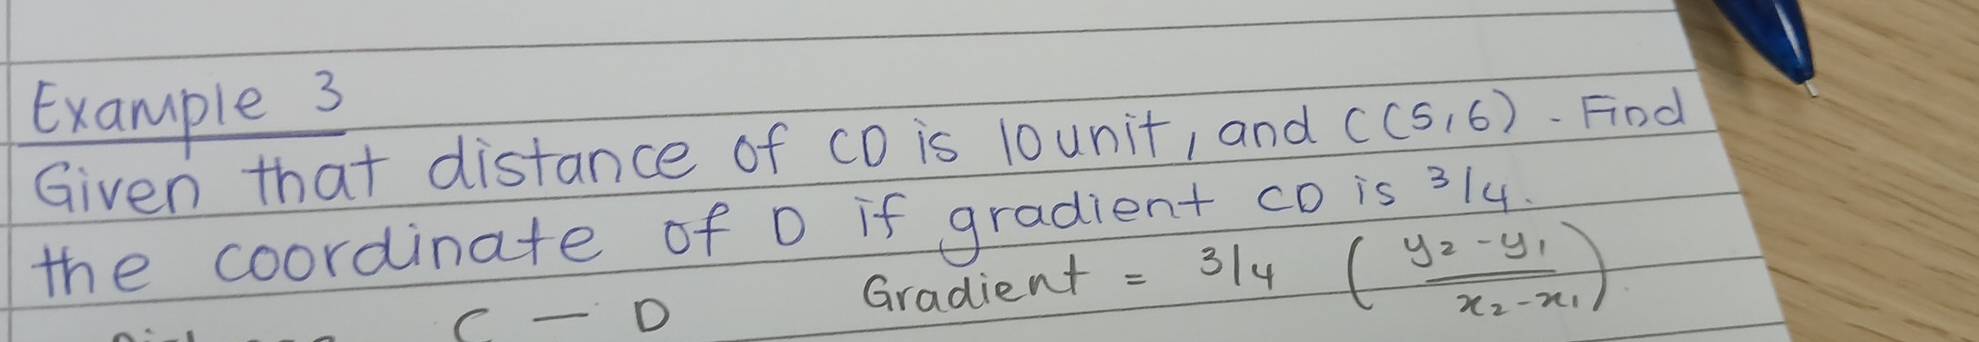 Example 3
Given that distance of CD is 10 unit, and C(5,6). Find
the coordinate of D if gradient CD is 3/4.
C — D Gradient = 3/4 ( y₂ - y₁ / x₂ - x₁ )